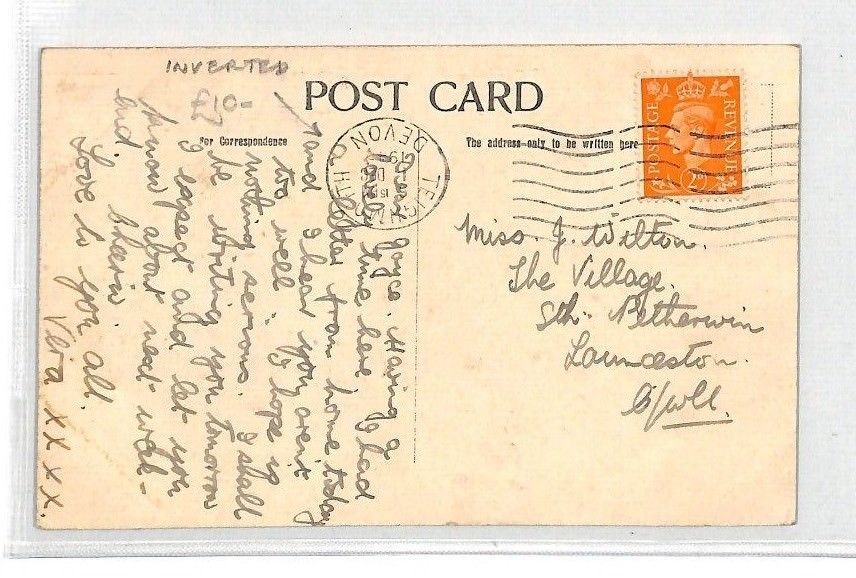 INVERTED
£10-
POST CARD
For Correspondence
The address only to be written here
POSTAGE
REVENUE
2½D
TEIGNMOUTH
DEVON
DEC
19
Miss. J. Wilton.
The Village.
Sth. Petherwin
Launceston.
C/wll.
Joyce. Having a
time here. I had
letter from home today
and I hear you aren't
too well. I hope is
nothing serious. I shall
be writing you tomorrow
I expect and let you
know about next week-
end.
Love to you all.
Vera xxxx.